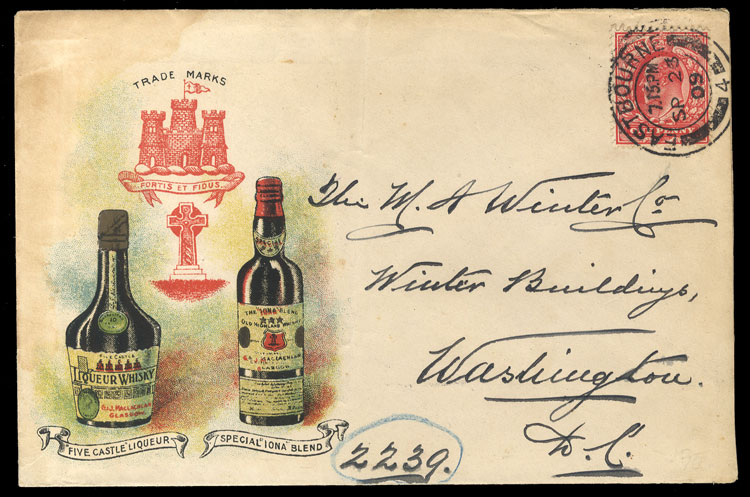 TRADE MARKS
FORTIS ET FIDUS
FIVE CASTLE
LIQUEUR WHISKY
G & J. MACLACHLAN
GLASGOW
SPECIAL
THE IONA BLEND
OLD HIGHLAND WHISKY
G & J. MACLACHLAN
GLASGOW
"FIVE CASTLE" LIQUEUR
SPECIAL "IONA" BLEND
EASTBOURNE
7.15 PM
SP 23
09
4 E
The M. A Winter Co
Winter Buildings,
Washington.
D. C.
2239.